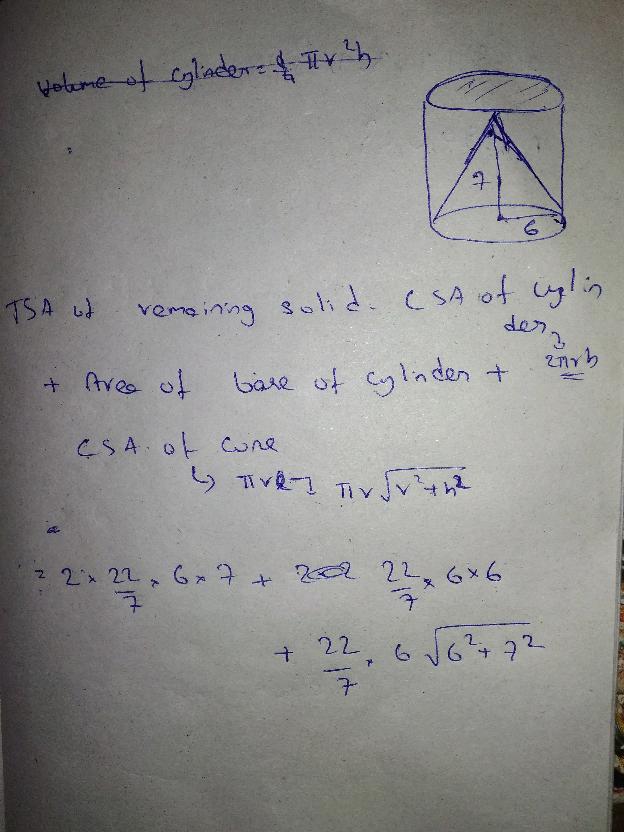 Volume of Cylinder = πr²h
7
6
TSA of remaining solid = CSA of cylin
der
2πrh
+ Area of base of cylinder +
CSA of cone
↳ πrl → πr√r²+h²
=
= 2 × 22/7 × 6 × 7 + 22/7 × 6 × 6
+ 22/7 × 6 √6²+7²